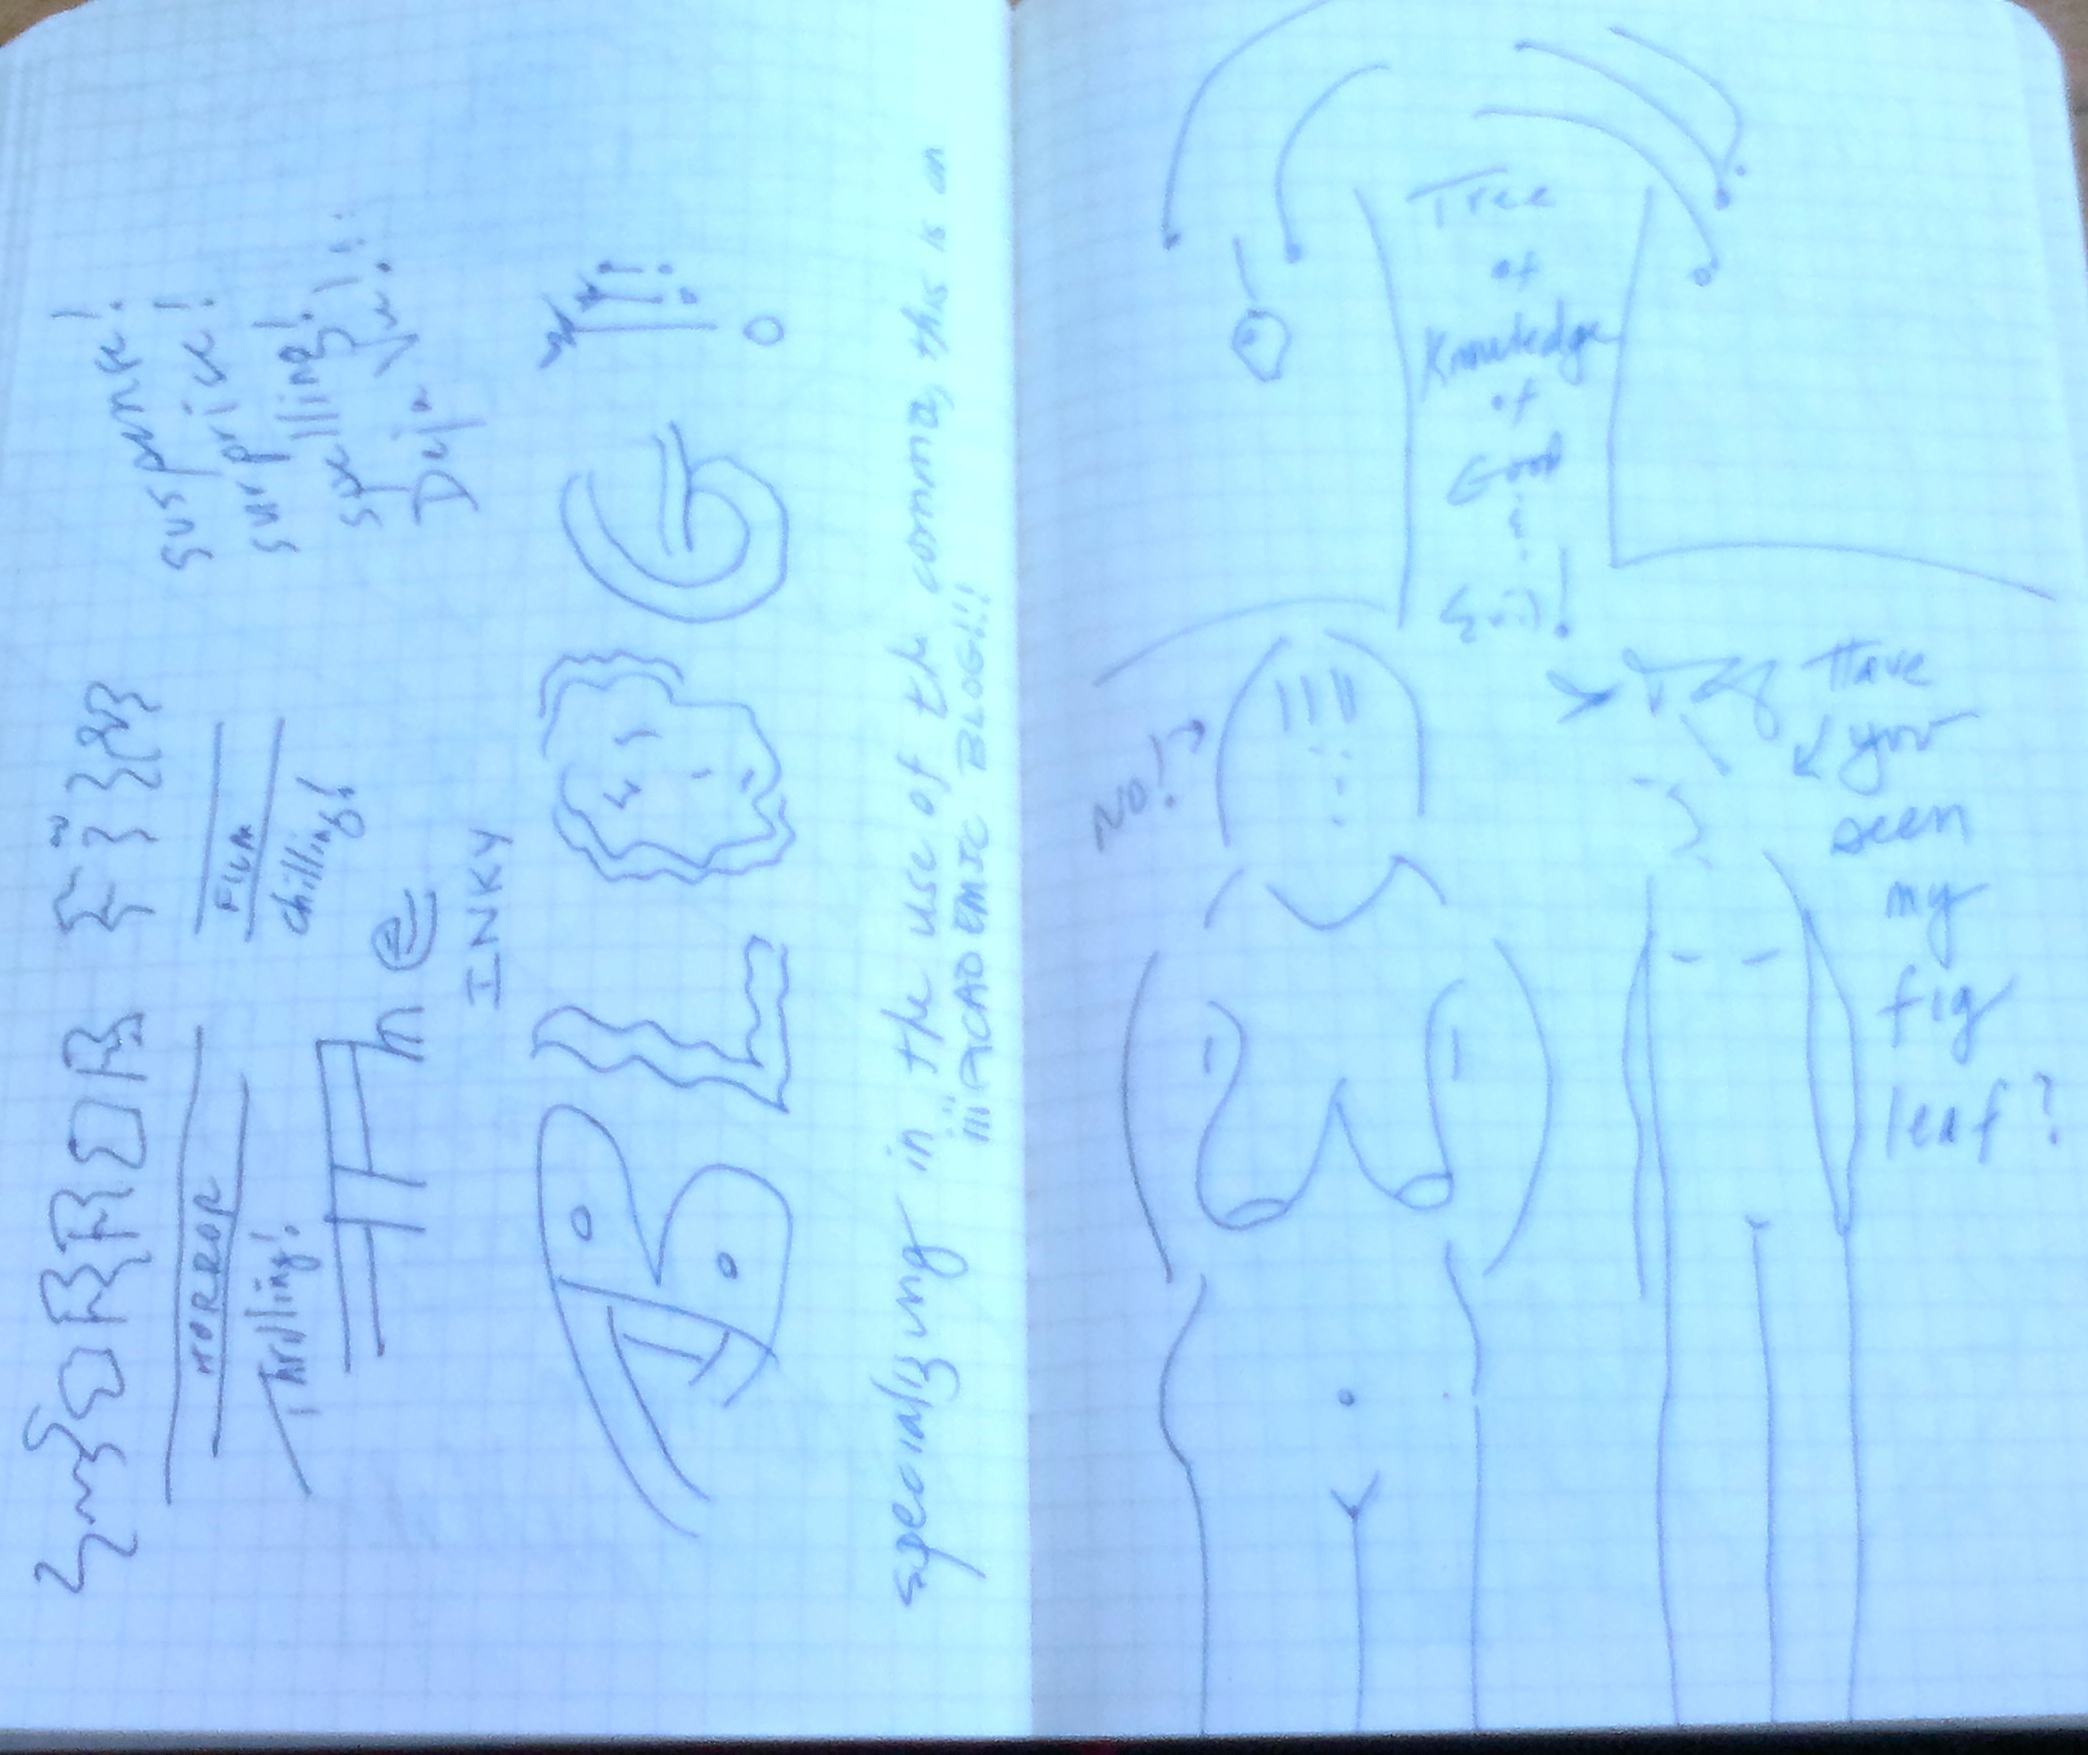 HORROR FILM
HORROR FILM
Thrilling! chilling!
suspense!
surprise!
spelling!
Deja Vu!!
The
INKY
BLOG!
specializing in the use of the comma, this is an
¡¡¡ACADEMIC BLOG!!!
Tree
of
Knowledge
of
Good
n
Evil!
NO!
Have
you
seen
my
fig
leaf?